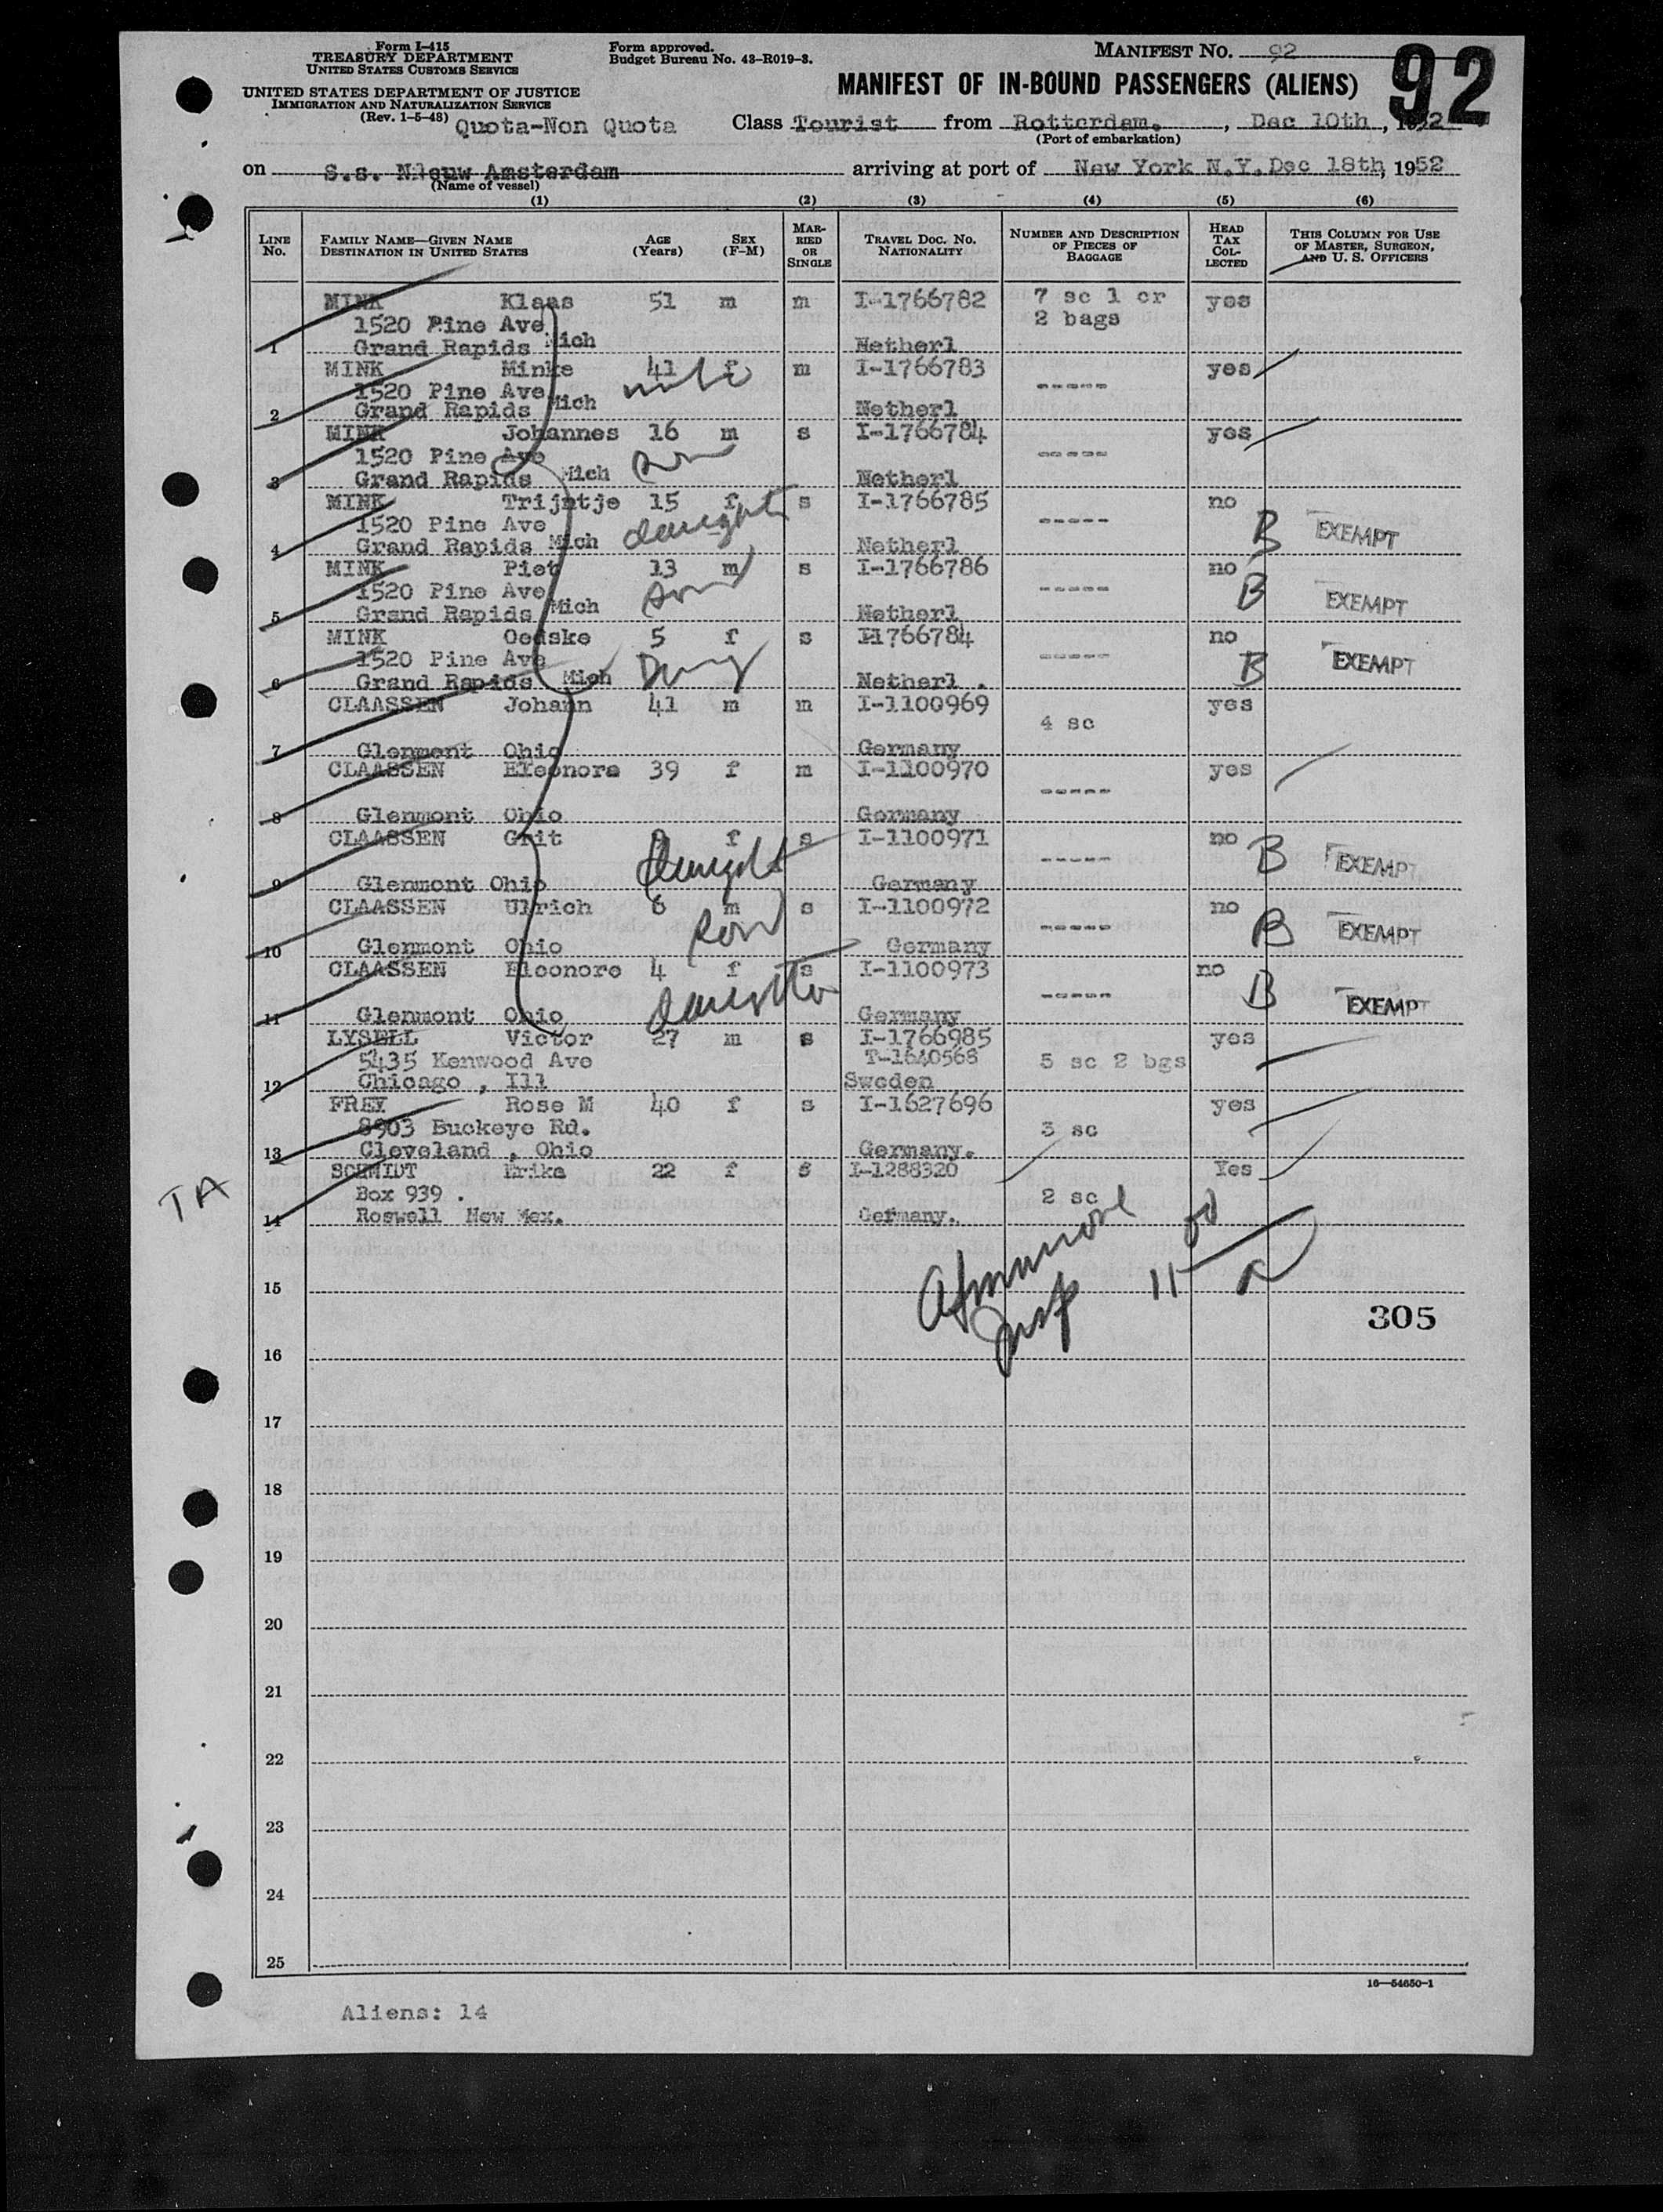 Form I-415
TREASURY DEPARTMENT
UNITED STATES CUSTOMS SERVICE
UNITED STATES DEPARTMENT OF JUSTICE
IMMIGRATION AND NATURALIZATION SERVICE
(Rev. 1-5-48)
Form approved.
Budget Bureau No. 43-R019-3.
MANIFEST NO. 92
92
MANIFEST OF IN-BOUND PASSENGERS (ALIENS)
Quota-Non Quota Class Tourist from Rotterdam. , Dec 10th , 1952
(Port of embarkation)
on S.s. Nieuw Amsterdam arriving at port of New York N.Y. Dec 18th, 1952
(Name of vessel)
(1) (2) (3) (4) (5) (6)
LINE No. FAMILY NAME—GIVEN NAME DESTINATION IN UNITED STATES AGE (Years) SEX (F-M) MARRIED OR SINGLE TRAVEL DOC. NO. NATIONALITY NUMBER AND DESCRIPTION OF PIECES OF BAGGAGE HEAD TAX COLLECTED THIS COLUMN FOR USE OF MASTER, SURGEON, AND U. S. OFFICERS
MINK Klaas 51 m m I-1766782 7 sc 1 cr yes
1520 Pine Ave 2 bags
1 Grand Rapids Mich Netherl
MINK Minke 41 f m I-1766783 ----- yes
1520 Pine Ave wife
2 Grand Rapids Mich Netherl
MINK Johannes 16 m s I-1766784 yes
1520 Pine Ave son -----
3 Grand Rapids Mich Netherl
MINK Trijntje 15 f s I-1766785 no
1520 Pine Ave daught ----- B EXEMPT
4 Grand Rapids Mich Netherl
MINK Piet 13 m s I-1766786 no
1520 Pine Ave son ----- B EXEMPT
5 Grand Rapids Mich Netherl
MINK Oedske 5 f s I-1766784 no
1520 Pine Ave Daug ----- B EXEMPT
6 Grand Rapids Mich Netherl .
CLAASSEN Johann 41 m m I-1100969 yes
4 sc
7 Glenmont Ohio Germany
CLAASSEN Eleonore 39 f m I-1100970 yes
-----
8 Glenmont Ohio Germany
CLAASSEN Grit 9 f s I-1100971 no
daught ----- B EXEMPT
9 Glenmont Ohio Germany
CLAASSEN Ulrich 6 m s I-1100972 no
son ----- B EXEMPT
10 Glenmont Ohio Germany
CLAASSEN Eleonore 4 f s I-1100973 no
daughter ----- B EXEMPT
11 Glenmont Ohio Germany
LYSELL Victor 27 m s I-1766985 yes
5435 Kenwood Ave T-1640568 5 sc 2 bgs
12 Chicago , Ill Sweden
FREY Rose M 40 f s I-1627696 yes
8903 Buckeye Rd. 3 sc
13 Cleveland , Ohio Germany.
SCHMIDT Erika 22 f s I-1288320 Yes
TA Box 939 . 2 sc
14 Roswell New Mex. Germany.
Insp
15
305
16
17
18
19
20
21
22
23
24
25
16—54650-1
Aliens: 14